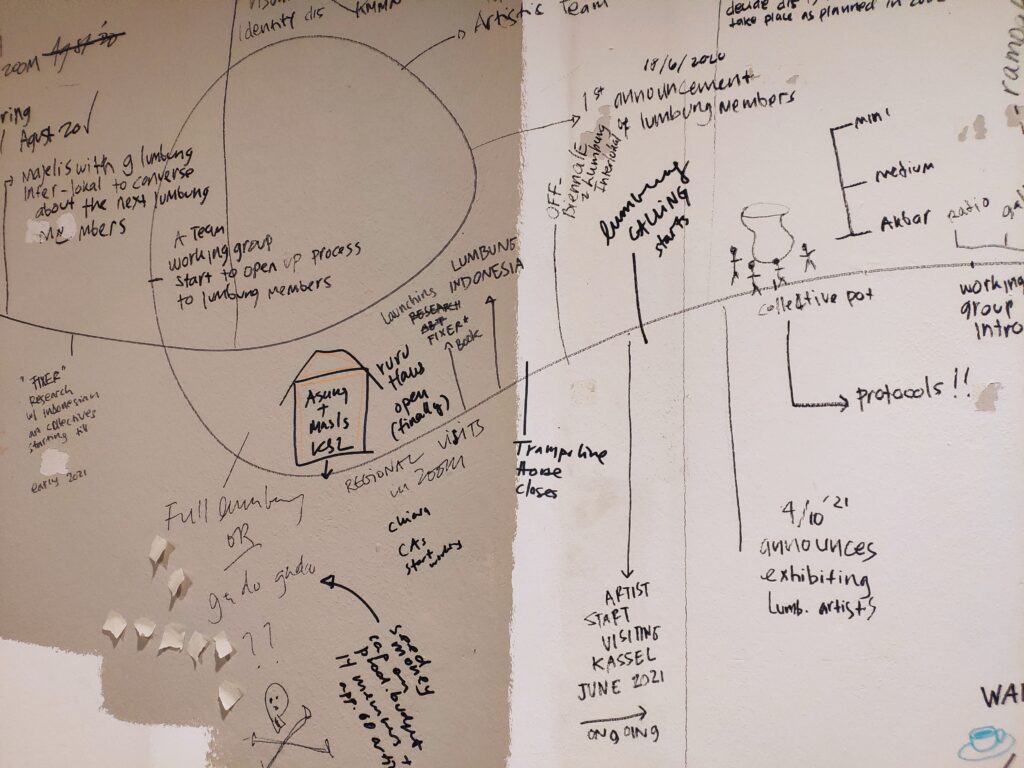 identity dis
Artistic Team
take place as planned in
ZOOM Agst '20
ring
Agust 20
Majelis with 9 lumbung
Inter-lokal to converse
about the next lumbung
mbers
A Team
working group
start to open up process
to lumbung members
18/6/2020
1st announcement
of lumbung members
OFF-
Biennale
lumbung
lumbung
CALLING
starts
mini
medium
Akbar
ratio
working
group
intro
collective pot
protocols !!
LUMBUNG
INDONESIA
Launching
RESEARCH
FIXER+
Book
ruru
Haus
open
(finally)
Asung
+
KS2
REGIONAL VISITS
ZOOM
China
CAs
start
"FIXER"
Research
w/ Indonesian
collectives
starting till
early 2021
Full lumbung
OR
gado gado
??
Seed
money
cap on
prod. budget
14 members +
app. 60
Trampoline
House
closes
ARTIST
START
VISITING
KASSEL
JUNE 2021
ONGOING
4/10 '21
announces
exhibiting
lumb. artist's